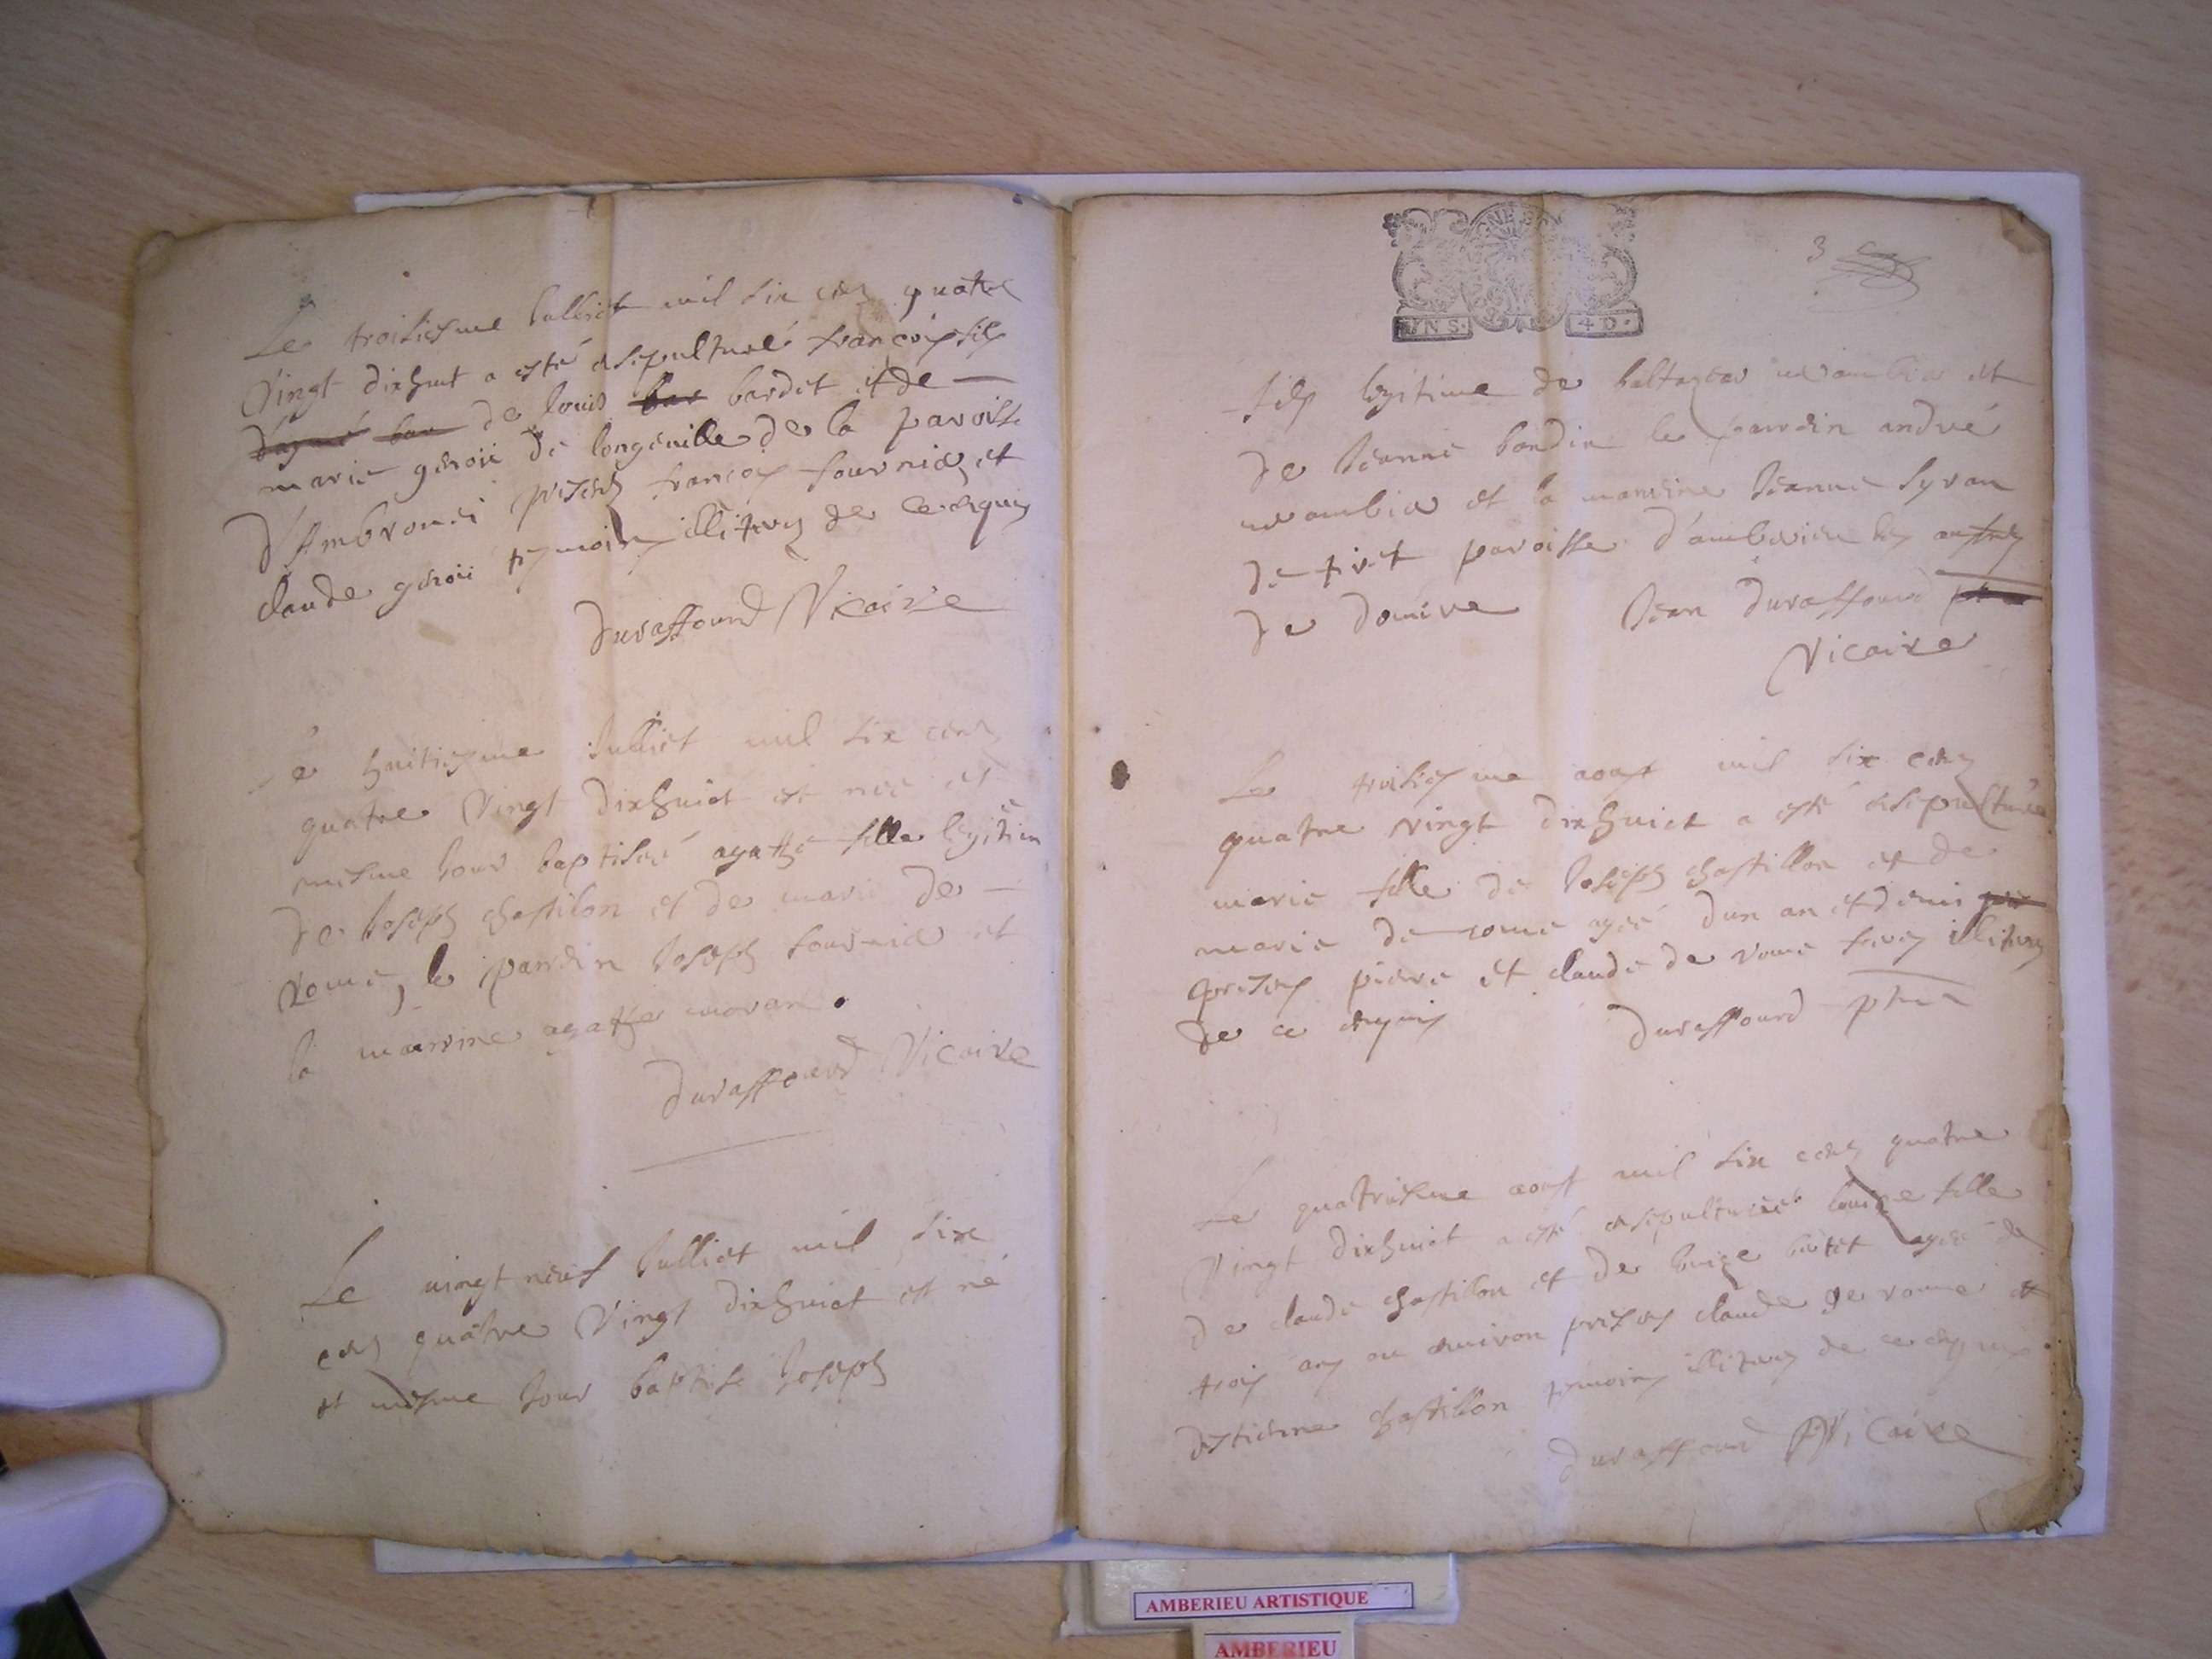 Le troisiesme Julliet mil six cens quatre
Vingt dixhuit a esté ensepulturé françois fils
de louis bar bardet et de
marie geroie de longeville de la paroisse
d'Ambronei presens françois fournier et
claude geroie tesmoins illiteres de ce enquis
Duraffourd Vicaire
Le huitiesme Julliet mil six cens
quatre Vingt dixhuict est née et
mesme Jour baptiseé agatthe fille legitime
de Joseph chastilon et de marie de
rome, le parrin Joseph fournier et
la marrine agathe moran.
Duraffourd Vicaire
Le vingt neuf Julliet mil six
cens quatre Vingt dixhuict est né
et mesme Jour baptise Joseph
3
NS. 4 D.
fils legitime de baltazar et
de Jeanne bondin le parrin andré
et la marrine Jeanne Syran
de tiret paroisse d'amberieu les autres
de douvre Jean Duraffourd
Vicaire
Le troisiesme aoust mil six cens
quatre vingt dixhuict a esté ensepulturée
marie fille de Joseph chastillon et de
marie de rome ageé d'un an et demi
presens piere et claude de rome freres illiteres
de ce enquis Duraffourd ptre
Le quatriesme aoust mil six cens quatre
Vingt dixhuict a esté ensepultureé louise fille
de claude chastillon et de louise ageé de
trois ans ou environ presens claude de rome et
destienne chastillon tesmoins illiteres de ce enquis
Duraffourd Vicaire
AMBERIEU ARTISTIQUE
AMBERIEU